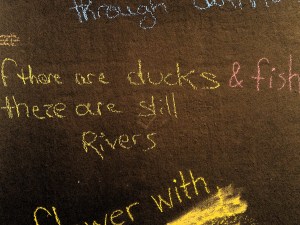 through
f there are ducks & fish
there are still
Rivers
flower with